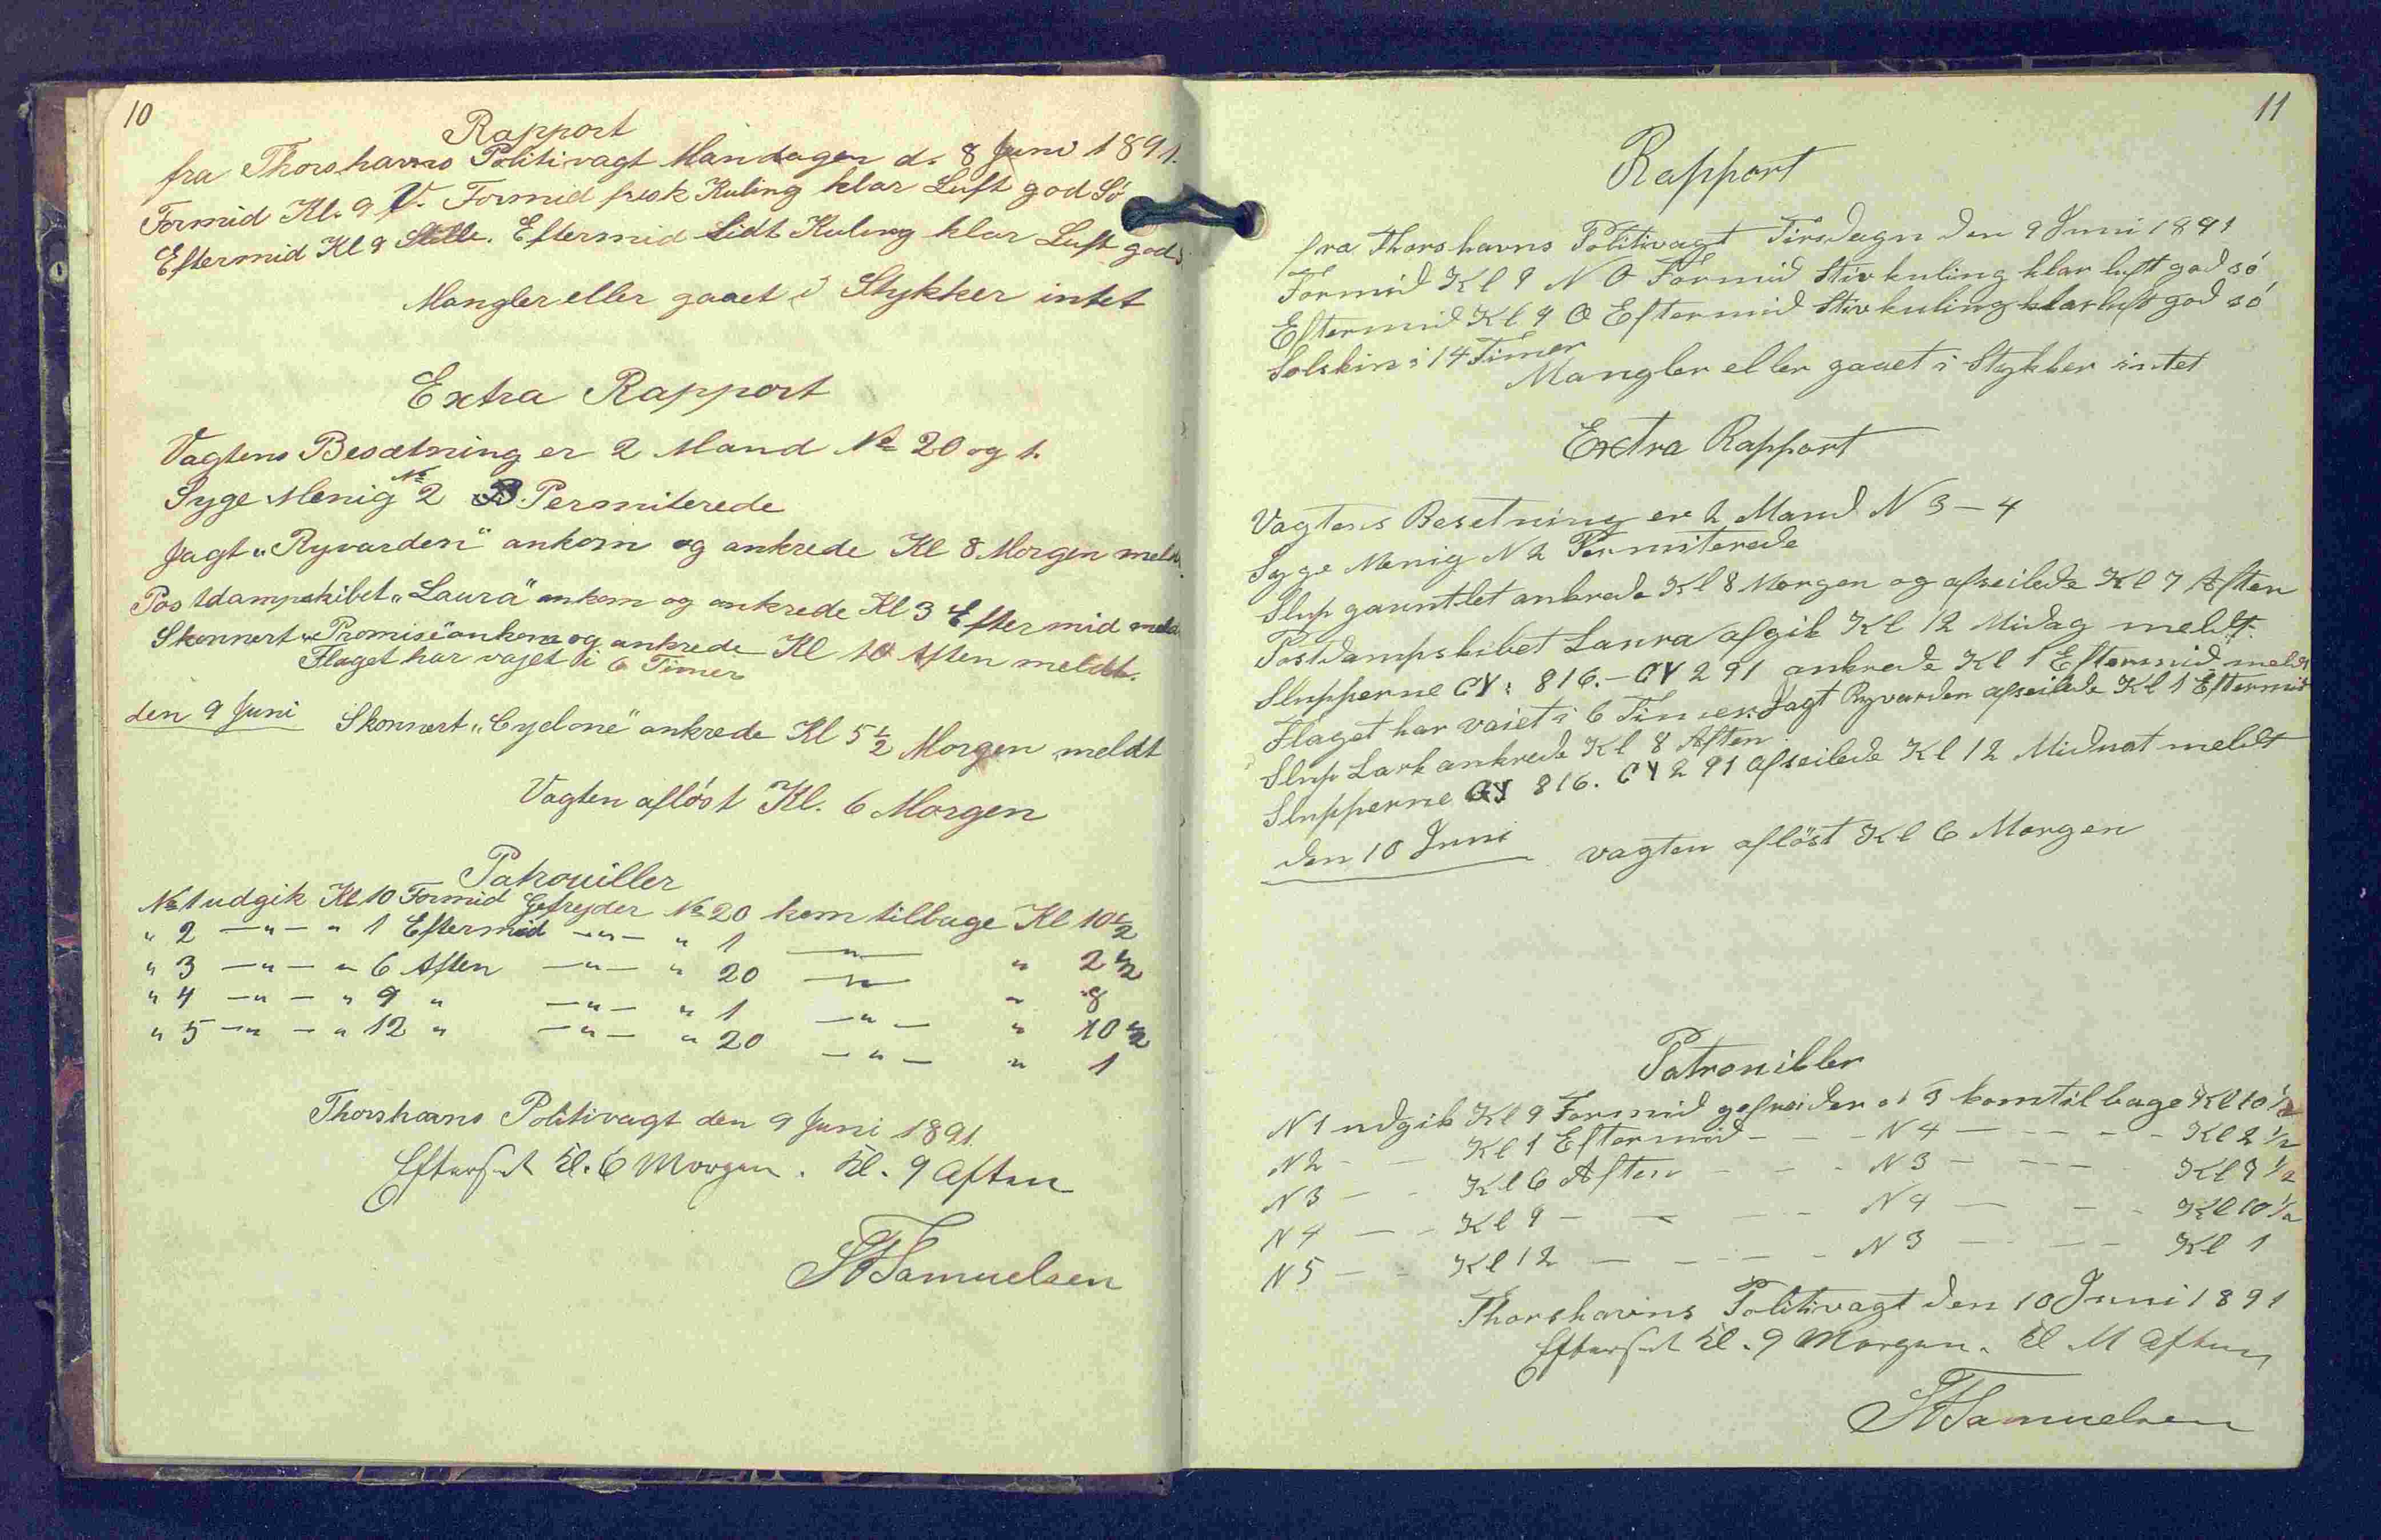 10
Rapport
fra Thorshavns Politivagt Mandagen d. 8 Juni 1891.
Formid Kl. 9 V. Formid frisk Kuling klar Luft god Sö
Eftermid Kl 9 Stille. Eftermid Lidt Kuling klar Luft god
Mangler eller gaaet i Stykker intet
Extra Rapport
Vagtens Besætning er 2 Mand № 20 og 1.
Syge Menig № 2 Permiterede
Jagt „Ryvarden" ankom og ankrede Kl 8 Morgen meldt
Postdampskibet „Laura" ankom og ankrede Kl 3 Eftermid meldt
Skonnert „Promise" ankom og ankrede Kl 10 Aften meldt.
Flaget har vajet i 6 Timer
den 9 Juni Skonnert „Cyclone" ankrede Kl 5 1/2 Morgen meldt
Vagten aflöst Kl. 6 Morgen
Patrouiller
№ 1 udgik Kl 10 Formid Gefrejder № 20 kom tilbage Kl 10 1/2
" 2 —"— " 1 Eftermid —"— " 1 —"— " 2 1/2
" 3 —"— " 6 Aften —"— " 20 —"— " 8
" 4 —"— " 9 " —"— " 1 —"— " 10 1/2
" 5 —"— " 12 " —"— " 20 —"— " 1
Thorshavns Politivagt den 9 Juni 1891
Efterset Kl. 6 Morgen. Kl. 9 Aften
Samuelsen
11
Rapport
fra Thorshavns Politivagt Tirsdagn den 9 Juni 1891
Formid Kl 9 N O Formid Stiv kuling klar luft god sö
Eftermid Kl 9 O Eftermid Stiv kuling klar luft god sö
Solskin i 14 Timer
Mangler eller gaaet i Stykker intet
Extra Rapport
Vagtens Besetning er 2 Mand N 3 – 4
Syge Menig N 2 Permiterede
Slup gauntlet ankrede Kl 8 Morgen og afseilede Kl 7 Aften
Postdampskibet Laura afgik Kl 12 Midag meldt.
Slupperne GY: 816. – GY 291 ankrede Kl 1 Eftermid meldt
Flaget har vaiet i 6 Timer. Jagt Ryvarden afseilede Kl 1 Eftermid
Slup Lark ankrede Kl 8 Aften.
Slupperne GY 816. GY 291 afseilede Kl 12 Midnat meldt
den 10 Juni vagten aflöst Kl 6 Morgen
Patrouiller
N 1 udgik Kl 9 Formid gefreider N 3 kom tilbage Kl 10 1/2
N 2 - - Kl 1 Eftermid - - - N 4 - - - - Kl 2 1/2
N 3 - - Kl 6 Aften - - - N 3 - - - - Kl 7 1/2
N 4 - - Kl 9 - - - - N 4 - - - Kl 10 1/2
N 5 - - Kl 12 - - - - N 3 - - - Kl 1
Thorshavns Politivagt den 10 Juni 1891
Efterset Kl. 9 Morgen. Kl 11 Aften
Samuelsen